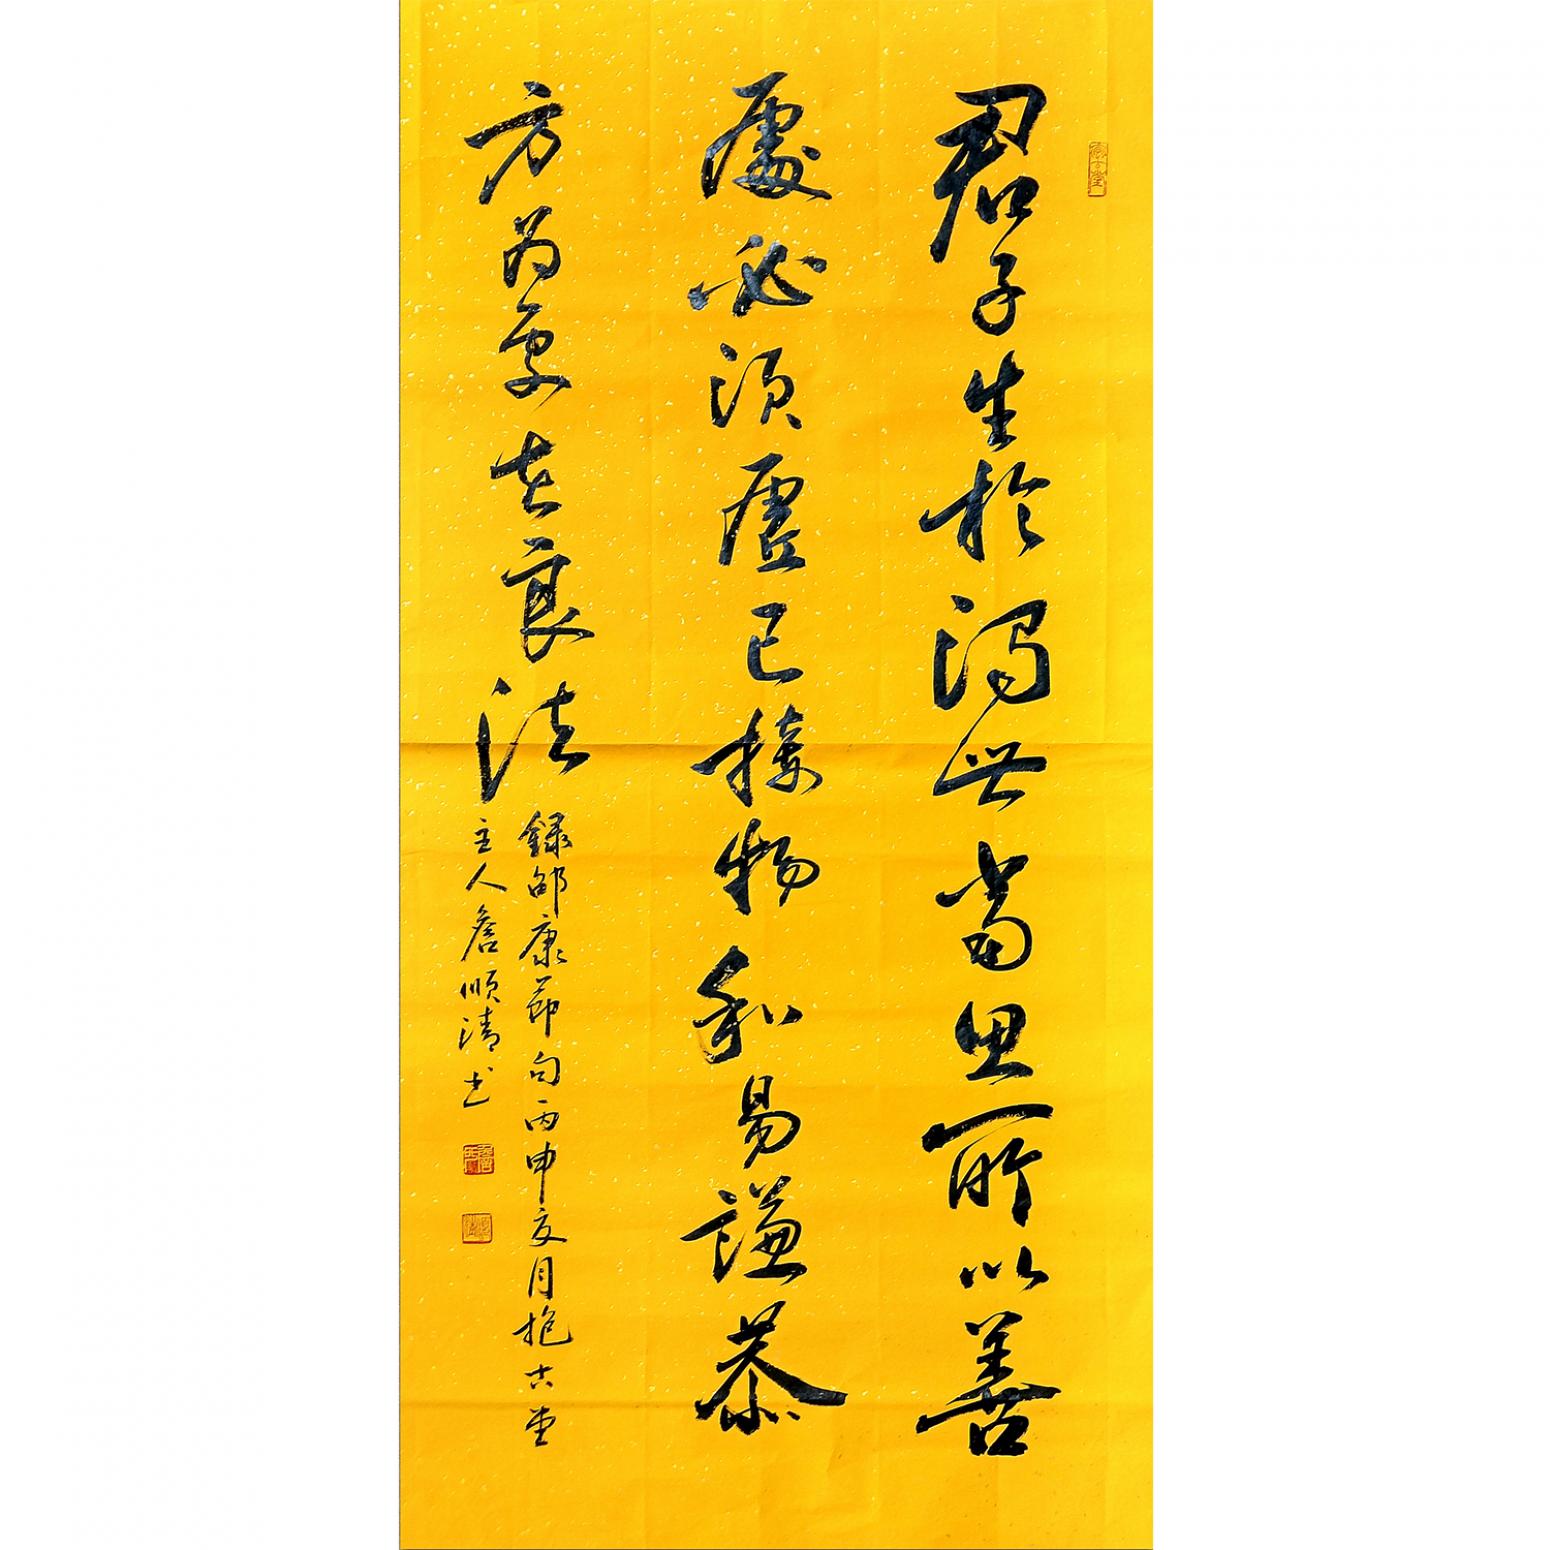 君子生於濁世當思所以善
處必須虛己接物和易謙恭
方為處世良法
錄邵康節句丙申亥月抱古堂
主人詹順清书